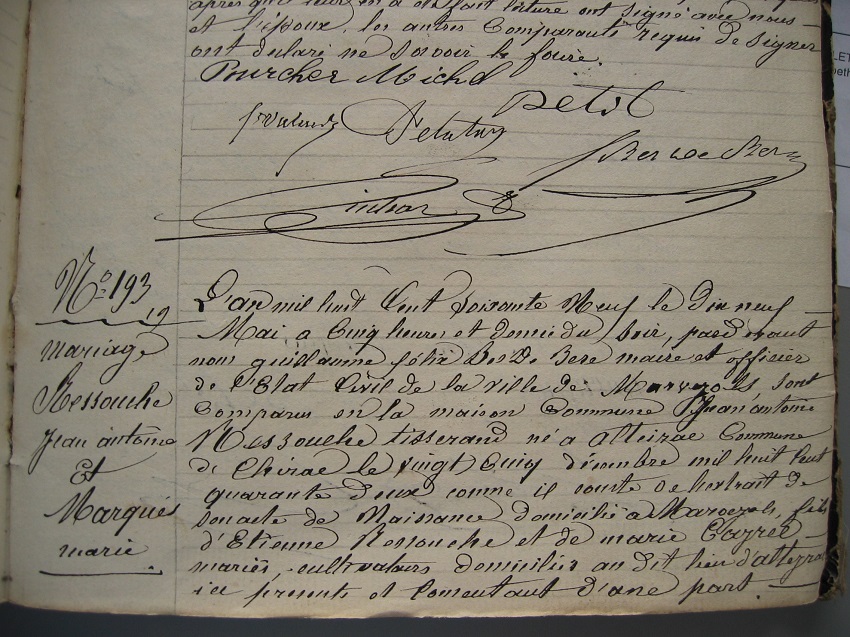 après que leur en a été fait lecture ont signé avec nous
et l'époux, les autres Comparants requis de signer
ont déclaré ne savoir le faire.
Purcher Michel
Petit
Delutan
Bor de Bere
No 193
19
mariage
Ressouche
jean antoine
Et
Marqués
marie
L'an mil huit Cent Soixante Neuf le dix neuf
Mai, a Cinq heures et demie du Soir, pard evant
nous guillaume félix Bor De Bere maire et officier
de l'Etat Civil de la ville de Marvejols sont
Comparus en la maison Commune Jean antoine
Ressouche tisserand né a atteirac Commune
de Chirac le vingt Cinq décembre mil huit Cent
quarante deux comme il conste de l'extrait de
son acte de Naissance domicilié a Marvejols, fils
d'Etienne Ressouche et de marie Cayrel
mariés, cultivateurs domiciliés au dit lieu d'atteyrac
ici présents et Consentant d'une part.